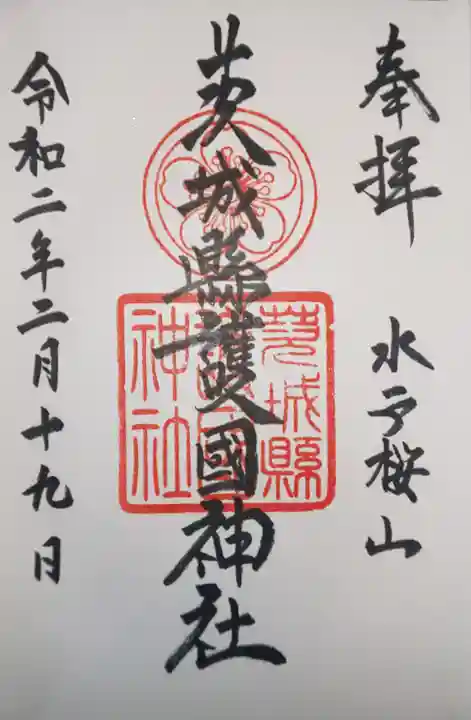 奉拝
水戸桜山
茨城縣護國神社
茨城縣
護國
神社
令和二年二月十九日